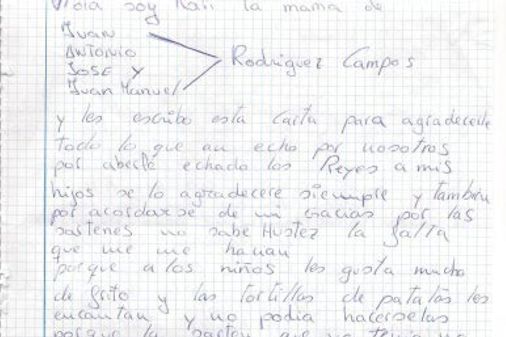 Hola soy Mari la mama de
Juan
ANTONIO
JOSE Y
Juan Manuel
Rodriguez Campos
y les escribo esta carta para agradecerle
todo lo que an echo por nosotros
por aberle echado los Reyes a mis
hijos se lo agradecere siempre y tambien
por acordarse de mi Gracias por las
sartenes no sabe Hustez la falta
que me me hacian
porque a los niños les gusta mucho
de frito y las tortillas de patatas les
encantan y no podia hacerselas
porque la sarten que yo tenia no